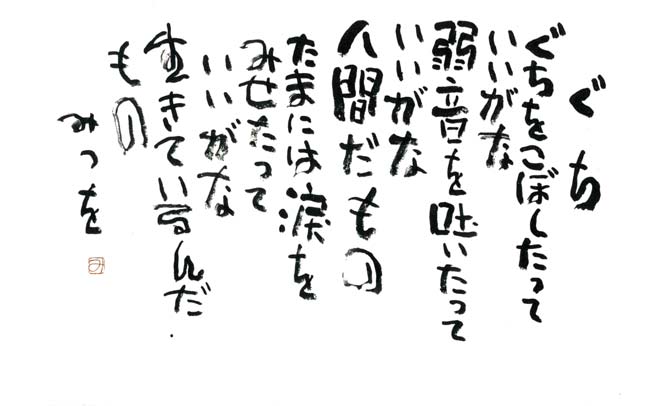 ぐち
ぐちをこぼしたって
いいがな
弱音を吐いたって
いいがな
人間だもの
たまには涙を
みせたって
いいがな
生きているんだ
もの
みつを
み